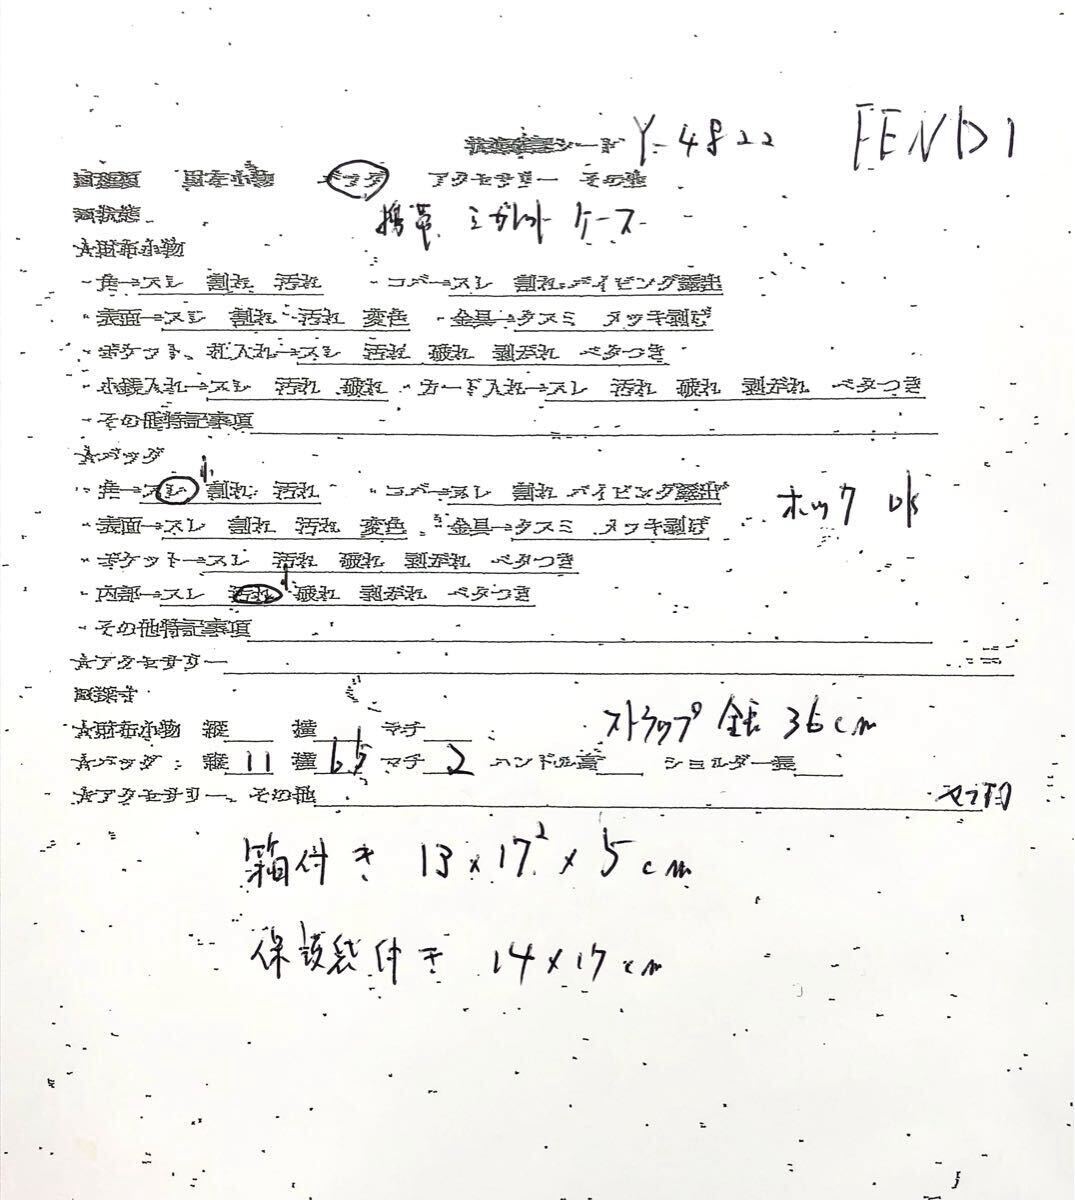 シート Y-4822 FENDI
財布小物 バッグ アクセサリー その他
状態
携帯 シガレット ケース
★財布小物
・角→スレ 割れ 汚れ ・コバ→スレ 割れ パイピング露出
・表面→スレ 割れ 汚れ 変色 ・金具→クスミ メッキ剥げ
・ポケット、札入れ→スレ 汚れ 破れ 剥がれ ベタつき
・小銭入れ→スレ 汚れ 破れ ・カード入れ→スレ 汚れ 破れ 剥がれ ベタつき
・その他特記事項
★バッグ
・角→スレ 小 割れ 汚れ ・コバ→スレ 割れ パイピング露出
ホック ok
・表面→スレ 割れ 汚れ 変色 ・金具→クスミ メッキ剥げ
・ポケット→スレ 汚れ 破れ 剥がれ ベタつき
・内部→スレ 汚れ 破れ 剥がれ ベタつき
・その他特記事項
★アクセサリー
採寸
ストラップ 全長 36cm
★財布小物 縦 横 マチ
★バッグ: 縦 11 横 6.5 マチ 2 ハンドル高 ショルダー長
★アクセサリー、その他
箱付き 13×17.2×5cm
保護袋付き 14×17cm